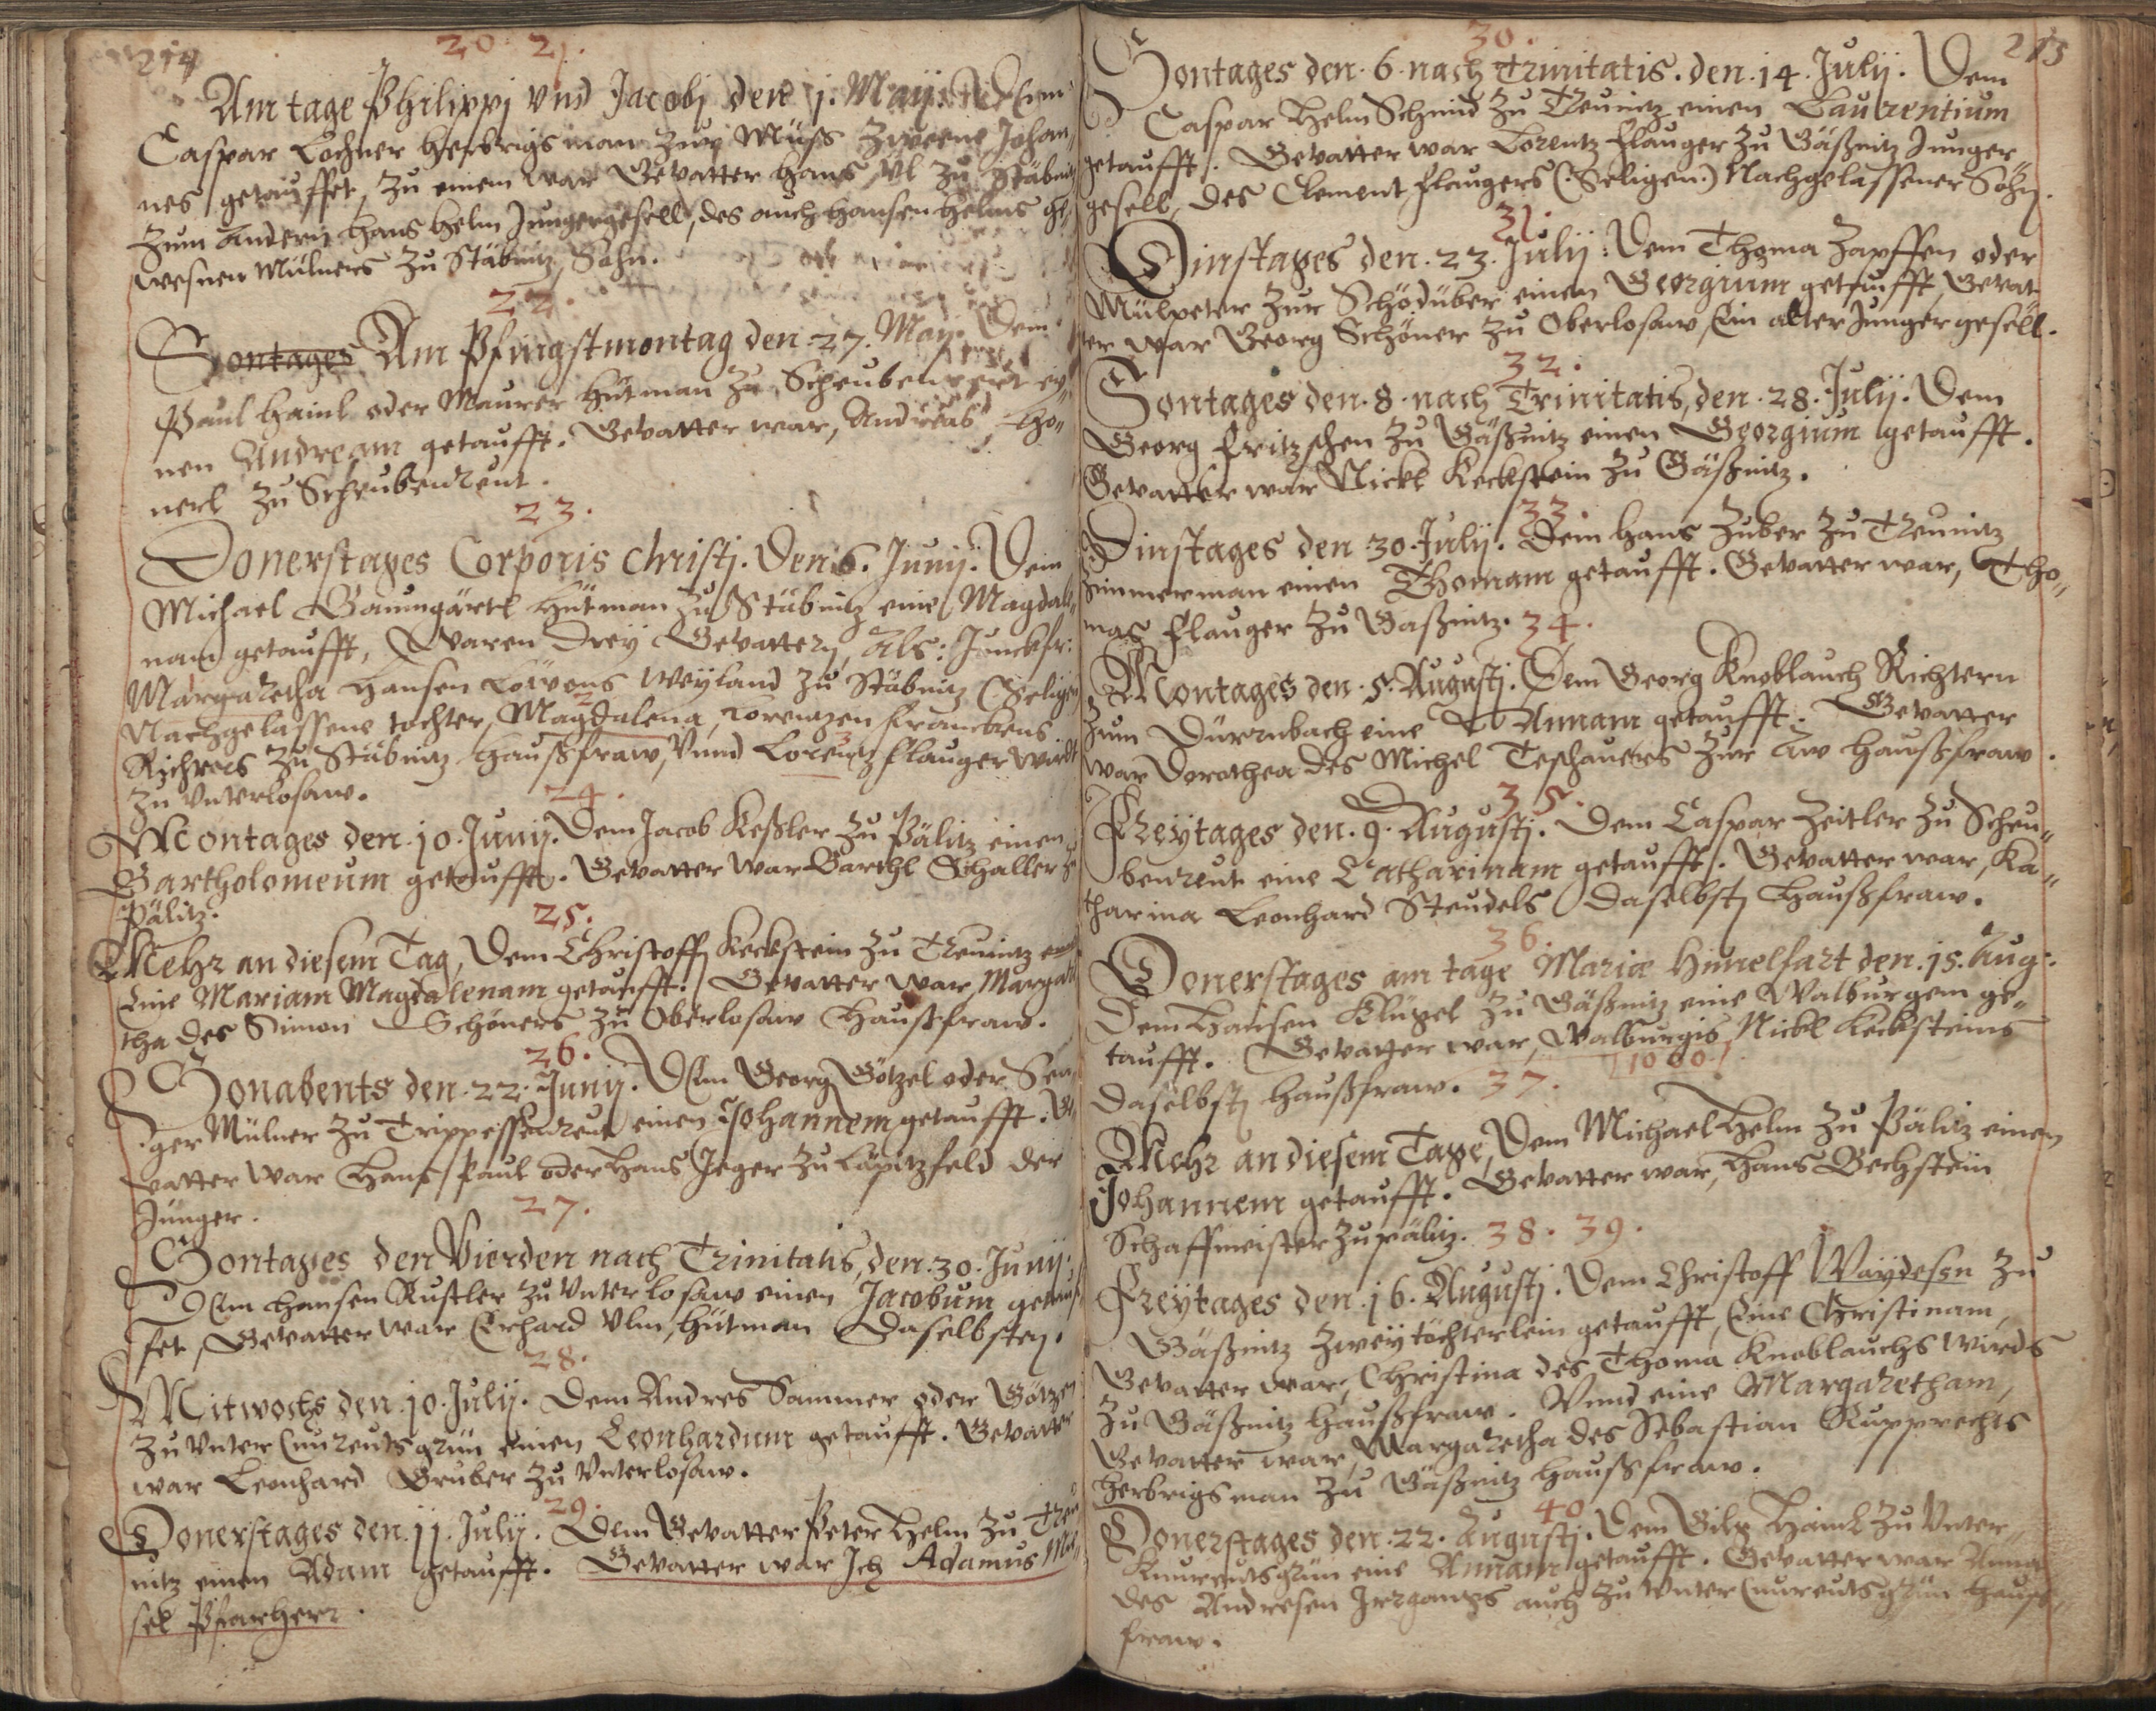 214
20. 21.
Am tage Philippj vnd Jacobj den 1. Maij. Dem
Caspar Lochner herbrigsman zur Müss zweene Johan-
nes getauffet, zu einem war Gevatter Hans Vl zu Stäbnitz
zum andern Hans Helm Jungergesell, des auch Hansen Helms ge-
wesnen Mülners zu Stäbnitz Sohn.
22.
Sontages Am Pfingstmontag den 27. Maij. Dem
Paul Hainl oder Maurer Hütman zu Scheubenreut ey-
nen Andream getaufft. Gevatter war, Andreas Tho-
nerl zu Scheubenreut.
23.
Donerstages Corporis Christj. Den 6. Junij. Dem
Michael Baumgärtl Hütman zu Stäbnitz eine Magdale-
nam getaufft, Waren Drey Gevattern, Als: Junckfr:
Margaretha Hansen Löwens Weyland zu Stäbnitz (Seligen
Nachgelassene tochter, Magdalena, Lorenzen Franckens
Richters zu Stäbnitz Haußfraw, Vnnd Lorentz Flauger Wirdt
zu Vnterlosaw.
24.
Montages den 10. Junij. Dem Jacob Keßler zu Pälitz einen
Bartholomeum getaufft. Gevatter war Barthl Schaller zu
Pälitz.
25.
Mehr an diesem Tag, Dem Christoff Keckstein zu Treunitz
Eine Mariam Magdalenam getaufft. Gevatter war, Margare
tha des Simon Schöners zu Oberlosaw Haußfraw.
26.
Sonabents den 22. Junij. Dem Georg Götzel oder
ger Mülner zu Trippessenreut einen Johannem getaufft. Ge
vatter war Hans Paul oder Hans Jeger zu Lapitzfeld der
Jünger.
27.
Sontages den Vierden nach Trinitatis, den 30. Junij.
Dem Hansen Rustler zu Vnterlosaw einen Jacobum getauf
fet, Gevatter war Erhard Vlm, Hütman Daselbsten.
28.
Mitwochs den 10. Julij. Dem Andres Sammer oder Götzen
zu Vnter Cunreutsgrün einen Leonhardum getaufft. Gevatter
war Leonhard Gruber zu Vnterlosaw.
29.
Donerstages den 11. Julij. Dem Gevatter Peter Helm zu Treu
nitz einen Adam getaufft. Gevatter war Ich Adamus
sel Pfarherr.
215
30.
Sontages den 6. nach Trinitatis. den 14. Julij. Dem
Caspar Helm Schmid zu Treunitz einen Laurentium
getaufft. Gevatter war Lorentz Flauger zu Gäßnitz Junger
gesell, des Clement Flaugers (:Seligen:) Nachgelassener Sohn.
31.
Dinstages den 23. Julij: Dem Thoma Zapffen oder
Mülpeter zur Schödüber einen Georgium getaufft, Gevat
ter war Georg Schöner zu Oberlosaw, Ein alter Junger gesell.
32.
Sontages den 8. nach Trinitatis, den 28. Julij. Dem
Georg Fritzschen zu Gäßnitz einen Georgium getaufft.
Gevatter war Nickl Keckstein zu Gäßnitz.
33.
Dinstages den 30. Julij. Dem Hans Zuber zu Treunitz
Zimmerman einen Thomam getaufft. Gevatter war, Tho-
mas Flauger zu Gäßnitz. 34.
Montages den 5. Augustj. Dem Georg Knoblauch Richtern
zum Dürrnbach eine Annam getaufft. Gevatter
war Dorothea des Michel Teschauers zur Aw Haußfraw.
35.
Freytages den 9. Augustj. Dem Caspar Zeitler zu Scheu-
benreut eine Catharinam getaufft. Gevatter war, Ka-
tharina Leonhard Steudels Daselbst Haußfraw.
36.
Donerstages am tage Mariæ Himelfart den 15. Aug:
Dem Hansen Klüpel zu Gäßnitz eine Walburgem ge-
taufft. Gevatter war, Walburgis, Nickl Kecksteins
Daselbst Haußfraw. 37. 1000
Mehr an diesem Tage, Dem Michael Helm zu Pälitz einen
Johannem getaufft. Gevatter war, Hans Bechstein
Schaffmeister zu Pälitz. 38. 39.
Freytages den 16. Augustj. Dem Christoff Waydesen zu
Gäßnitz zwey töchterlein getaufft, Eine Christinam,
Gevatter war, Christina des Thoma Knoblauchs Wirds
zu Gäßnitz Haußfraw. Vnnd eine Margaretham,
Gevatter war, Margaretha des Sebastian Rupprechts
herbrigsman zu Gäßnitz Haußfraw.
40
Donerstages den 22. Augustj. Dem Gilg Hainl zu Vnter-
Kunreutsgrün eine Annam getaufft. Gevatter war Anna
des Andresen Irrgangs auch zu Vnter Cunreutsgrün Hauß-
fraw.